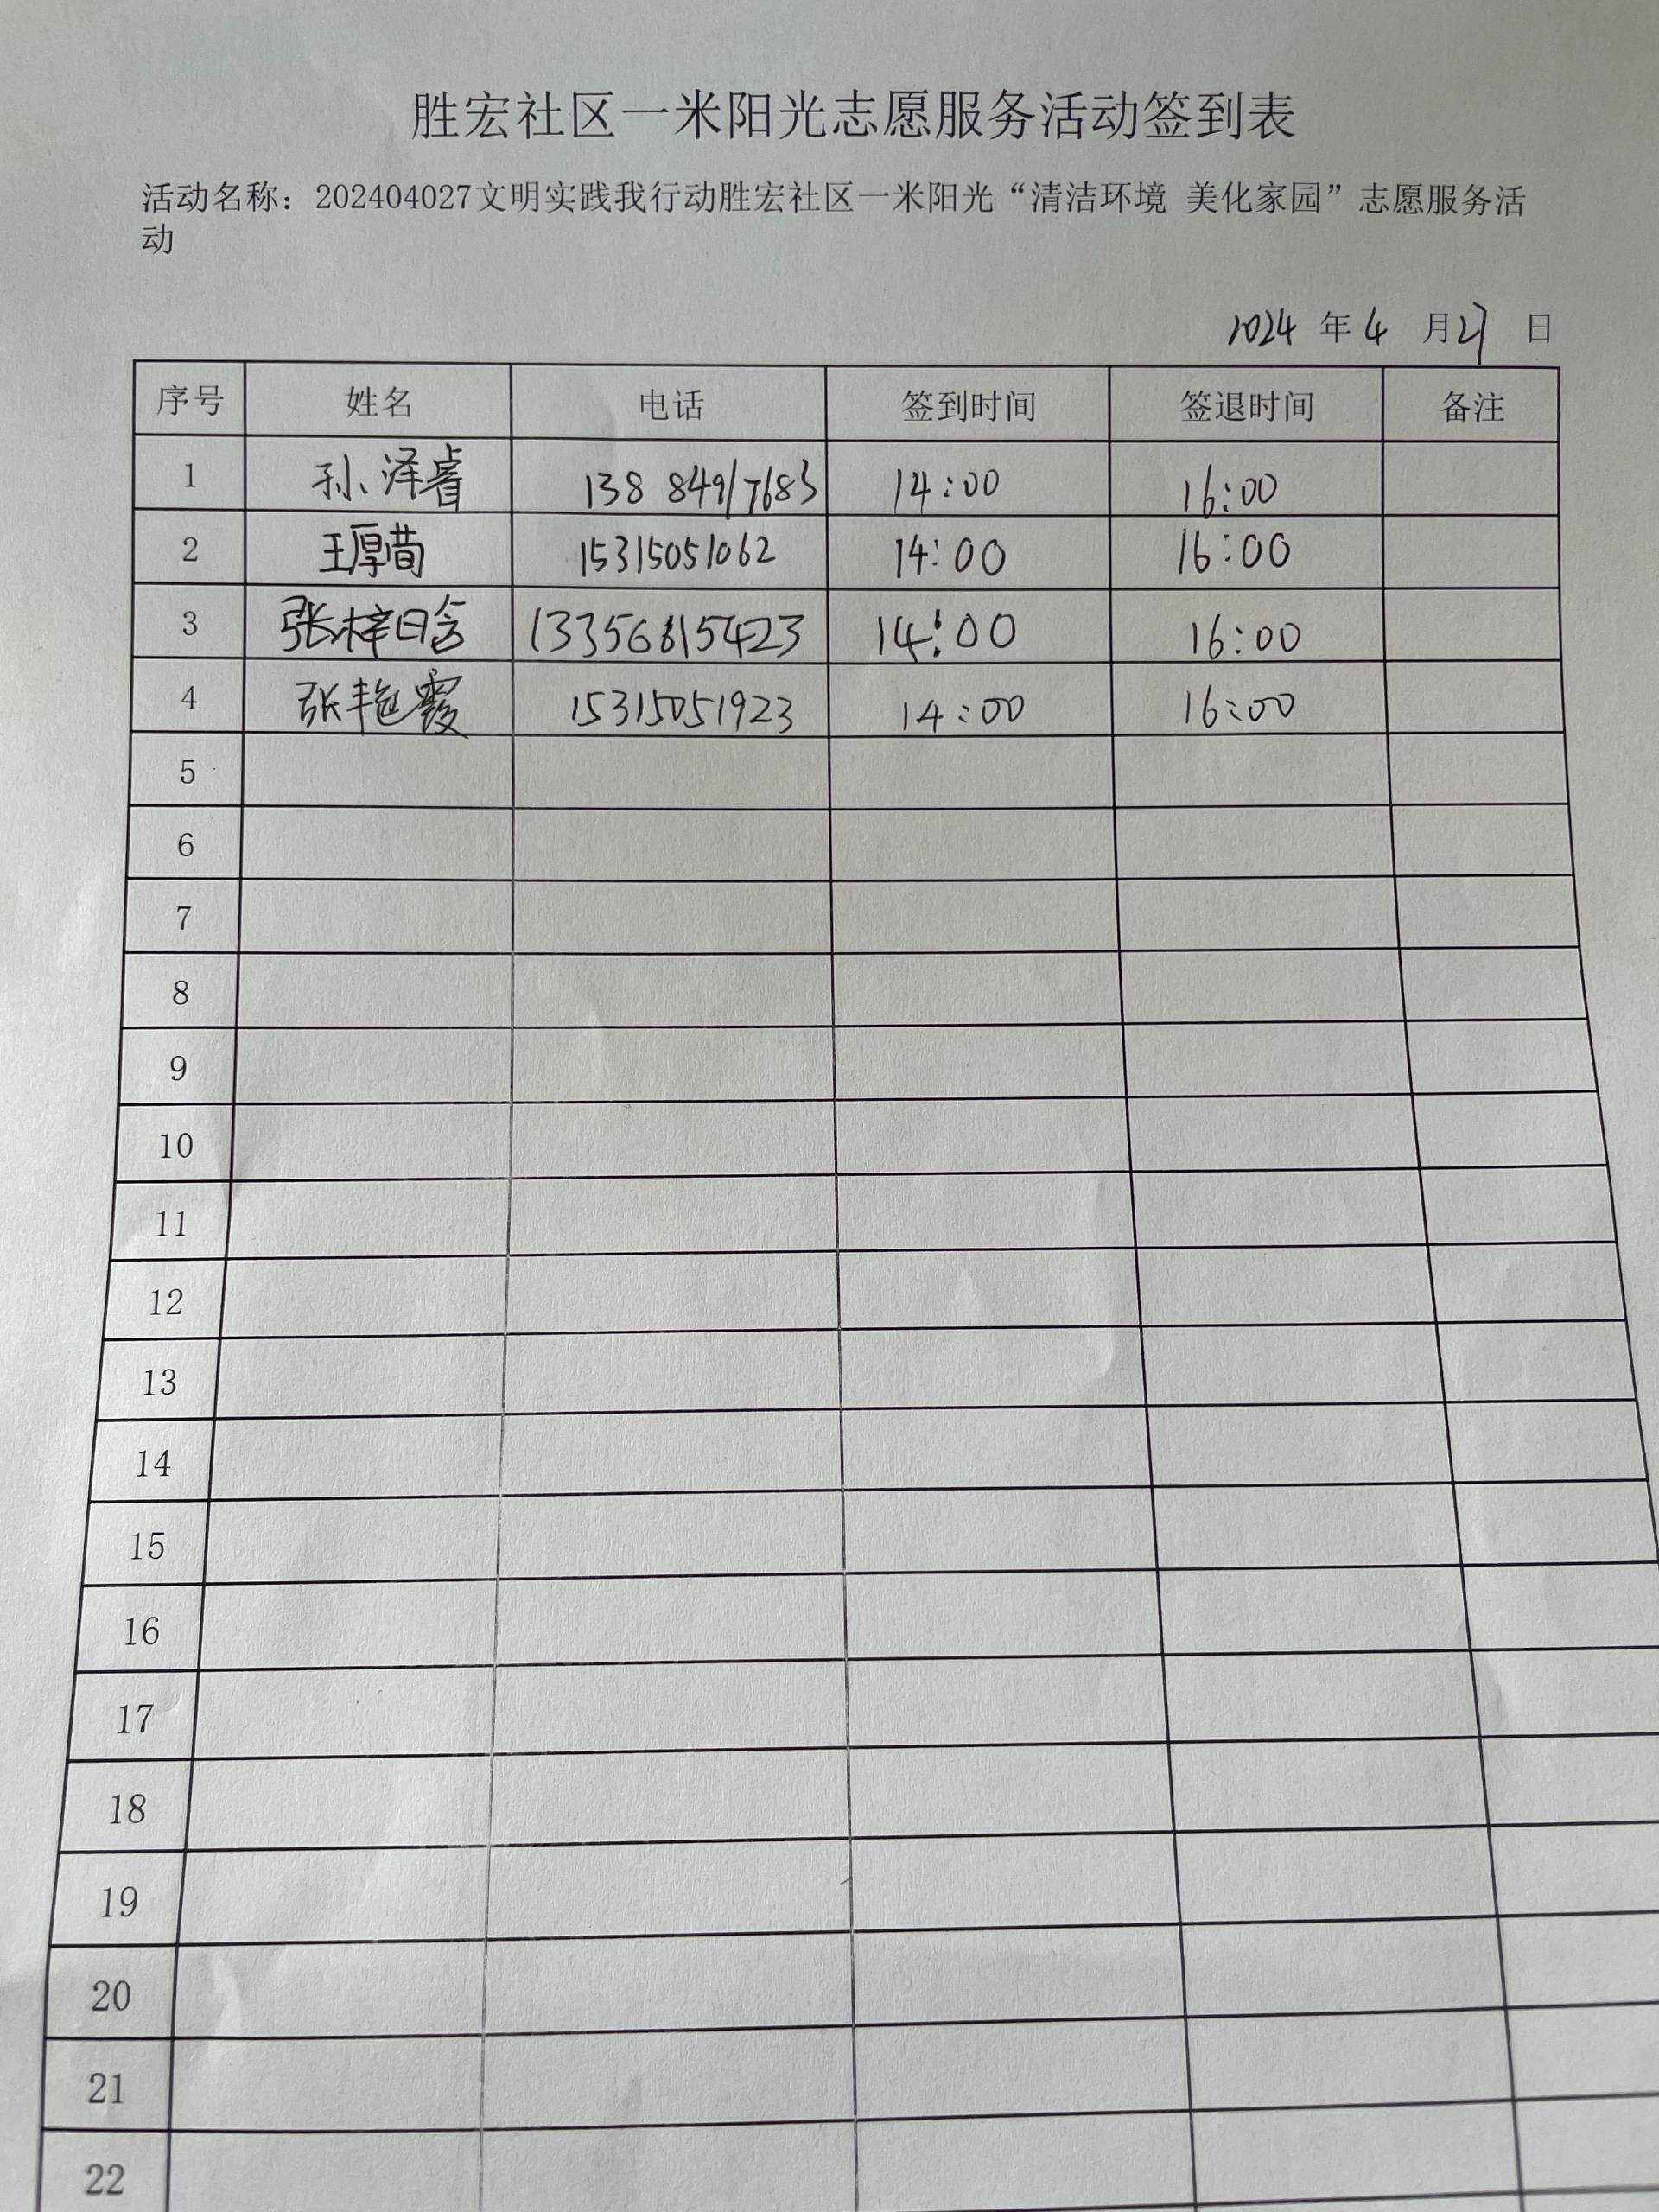 胜宏社区一米阳光志愿服务活动签到表
活动名称：202404027文明实践我行动胜宏社区一米阳光“清洁环境 美化家园”志愿服务活
动
2024 年 4 月 27 日
序号 姓名 电话 签到时间 签退时间 备注
1 孙泽睿 138 84917683 14:00 16:00
2 王厚萄 15315051062 14:00 16:00
3 张梓晗 13356815423 14:00 16:00
4 张艳霞 15315051923 14:00 16:00
5
6
7
8
9
10
11
12
13
14
15
16
17
18
19
20
21
22